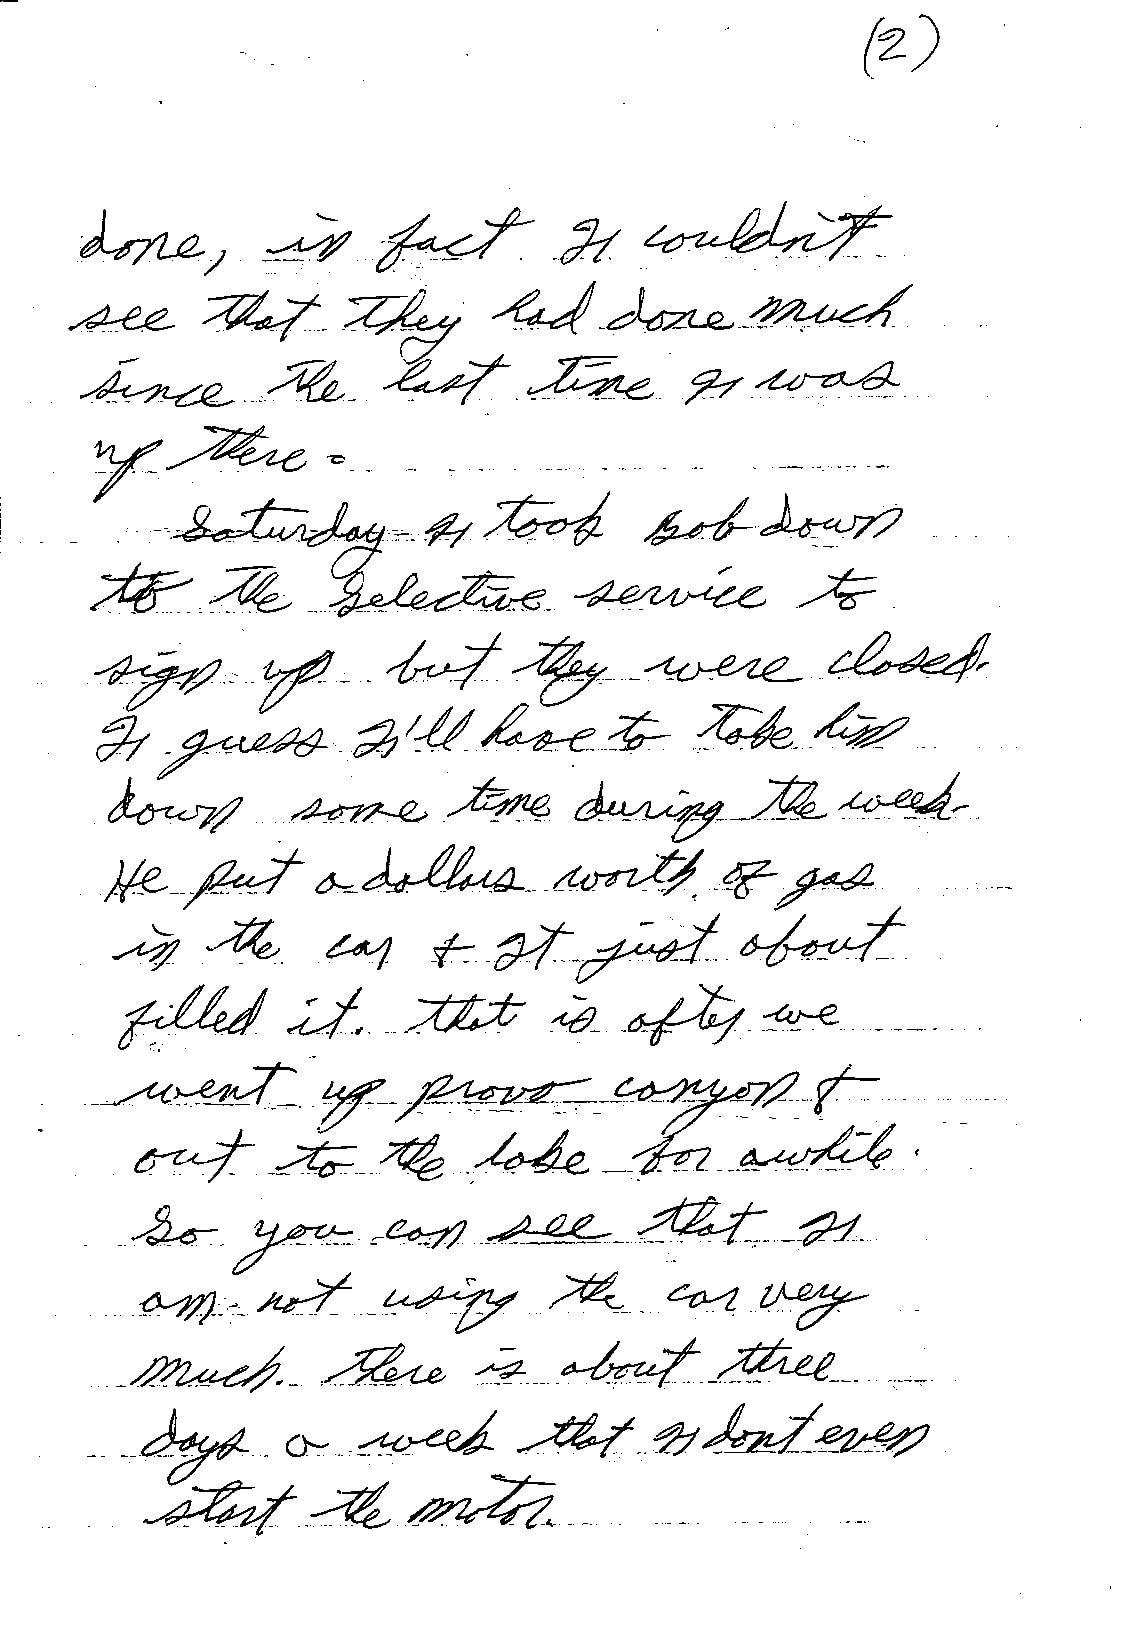 (2)
done, in fact I couldn't
see that they had done much
since the last time I was
up there.
Saturday I took Bob down
to the Selective service to
sign up but they were closed.
I guess I'll have to take him
down some time during the week.
He put a dollars worth of gas
in the car & It just about
filled it. that is after we
went up provo canyon &
out to the lake for awhile.
So you can see that I
am not using the car very
much. there is about three
days a week that I dont even
start the motor.